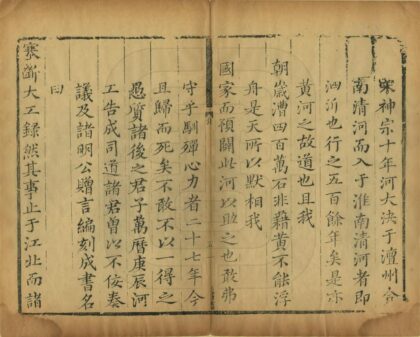 宋神宗十年河大決于澶州合
南清河而入于淮南清河者即
泗沂也行之五百餘年矣是亦
黃河之故道也且我
朝歲漕四百萬石非藉黃不能浮
舟是天所以默相我
國家而預闢此河以助之也敢弗
守乎馴殫心力者二十七年今
且歸而死矣不敢不以一得之
愚質諸後之君子萬曆庚辰河
工告成司道諸君曾以不佞奏
議及諸明公贈言編刻成書名
曰
塞斷大工錄然其事止于江北而諸